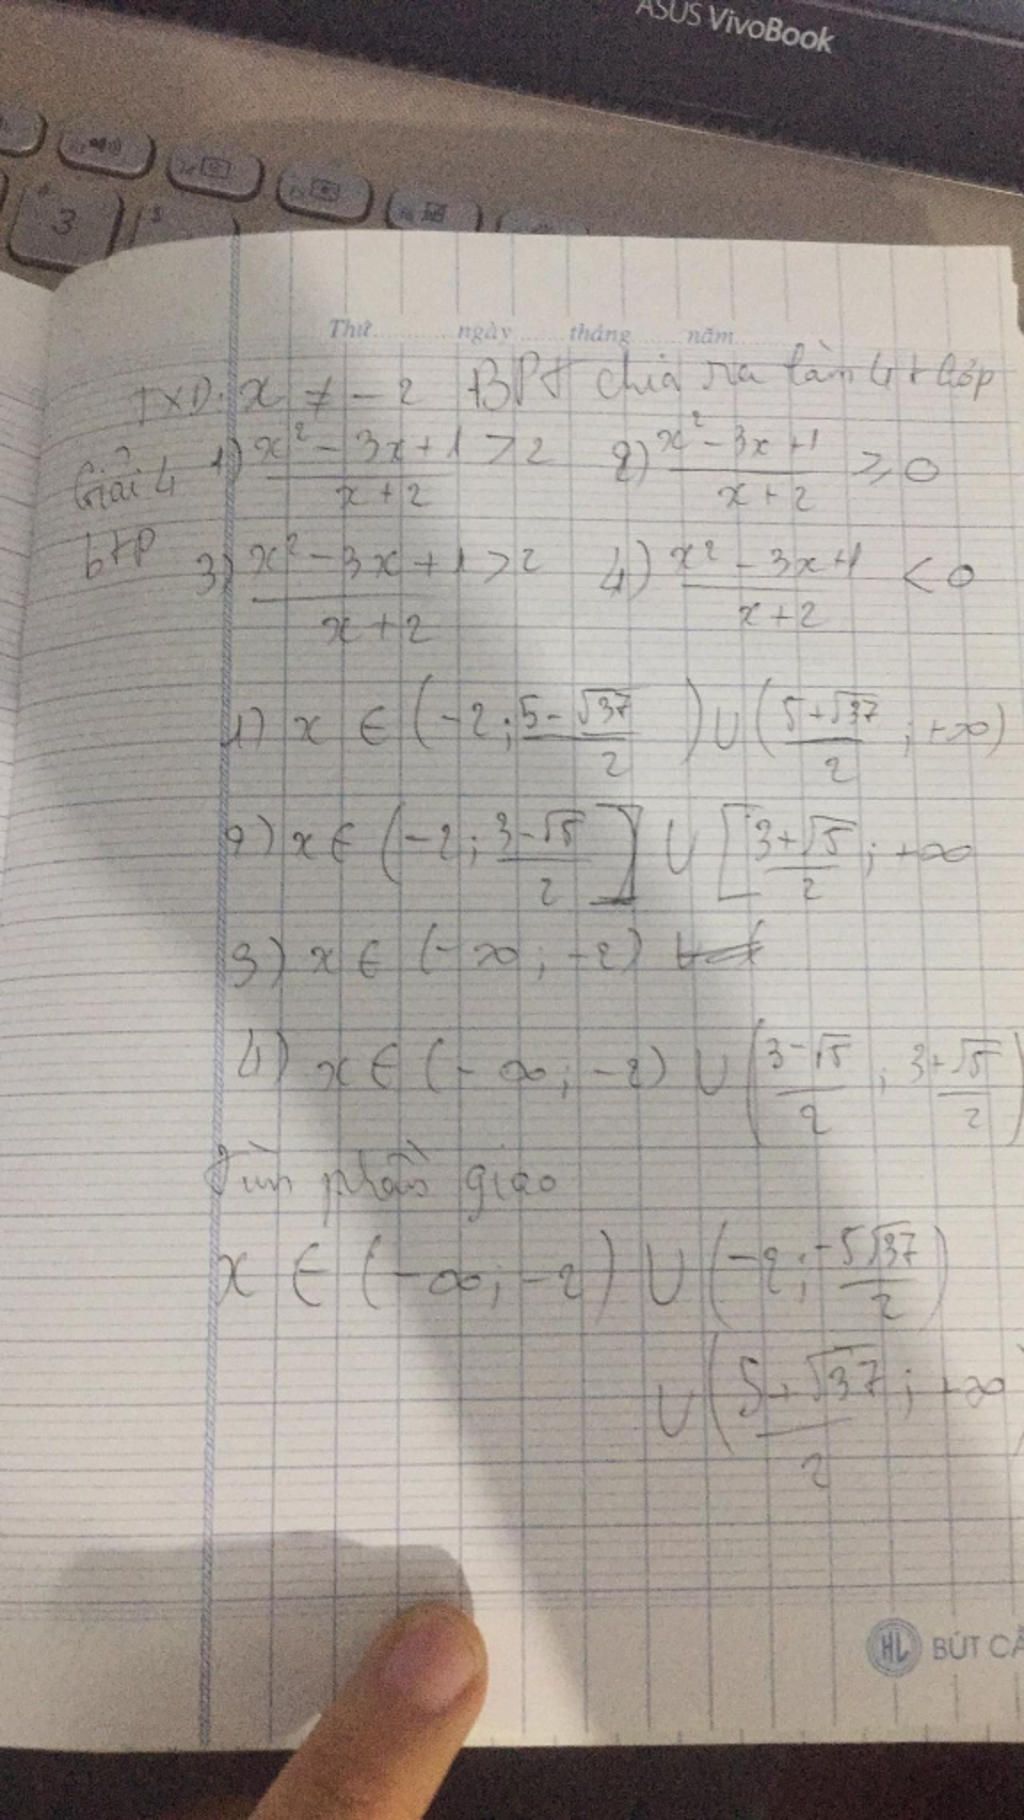 ASUS VivoBook
3
Thứ ngày tháng năm
TXD: x ≠ -2 BPT chia ra làm 4 t hợp
Giải 4 1) (x² - 3x + 1)/(x + 2) > 2 2) (x² - 3x + 1)/(x + 2) ≥ 0
btp 3) (x² - 3x + 1)/(x + 2) > 2 4) (x² - 3x + 1)/(x + 2) < 0
1) x ∈ (-2; (5 - √37)/2) ∪ ((5 + √37)/2; +∞)
2) x ∈ (-2; (3 - √5)/2] ∪ [(3 + √5)/2; +∞
3) x ∈ (-∞; -2)
4) x ∈ (-∞; -2) ∪ ((3 - √5)/2; (3 + √5)/2)
Tìm phần giao
x ∈ (-∞; -2) ∪ (-2; (-5√37)/2)
∪ ((5 + √37)/2; +∞)
HL BÚT CẢ